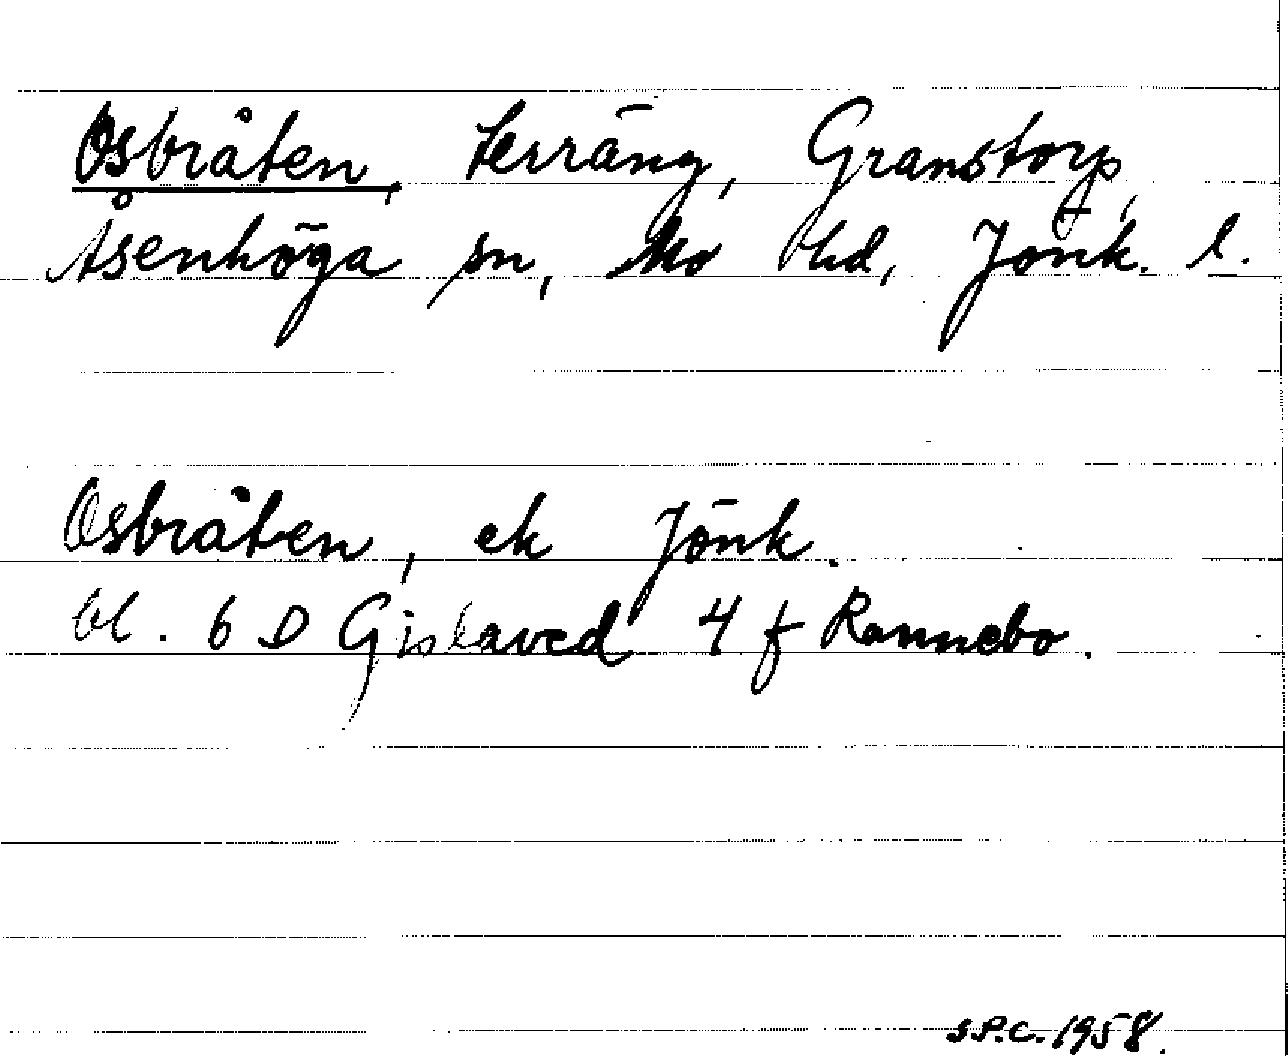 Osbråten, Terräng, Granstorp,
Åsenhöga sn, Mo hd, Jönk. l.
Osbråten, ek Jönk.
bl. 6 D Gislaved 4 f Rannebo.
S.P.C. 1958.